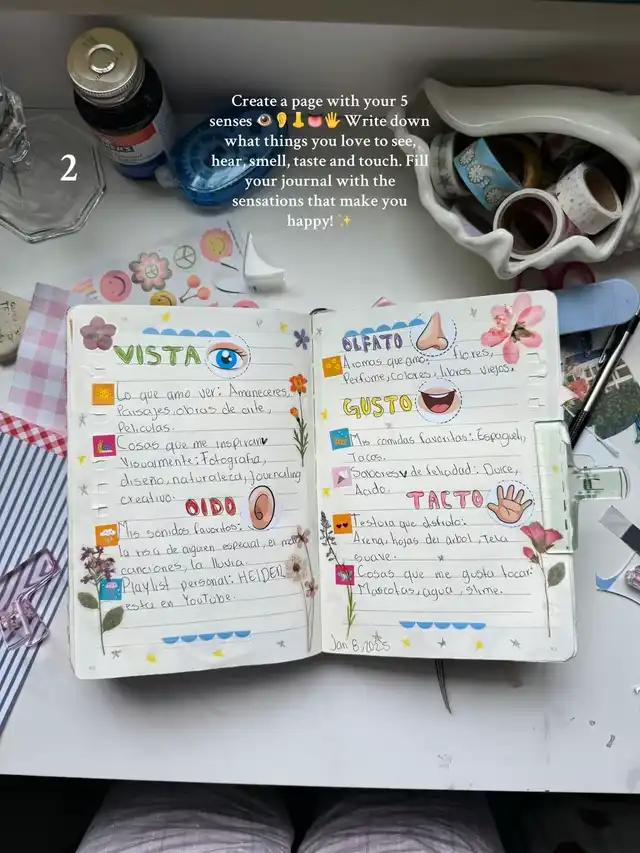 2
Create a page with your 5
senses 👁️👂👃👅🖐️ Write down
what things you love to see,
hear, smell, taste and touch. Fill
your journal with the
sensations that make you
happy! ✨
VISTA
Lo que amo ver: Amaneceres,
Paisajes, obras de arte,
Peliculas.
Cosas que me inspiran
Visualmente: Fotografia,
diseño, naturaleza, Journaling
creativo.
OIDO
Mis sonidos favoritos:
la risa de alguien especial, el mar
canciones, la lluvia.
Playlist personal: HEIDELL
esta en YouTube.
OLFATO
Aromas que amo: flores,
Perfume, colores, libros viejos.
GUSTO
Mis comidas favoritas: Espagueti,
Tacos.
Sabores de felicidad: Dulce,
Acido.
TACTO
Textura que disfruto:
Arena, hojas de arbol, Tela
suave.
Cosas que me gusta tocar:
Mascotas, agua, slime.
Jan 8, 2025